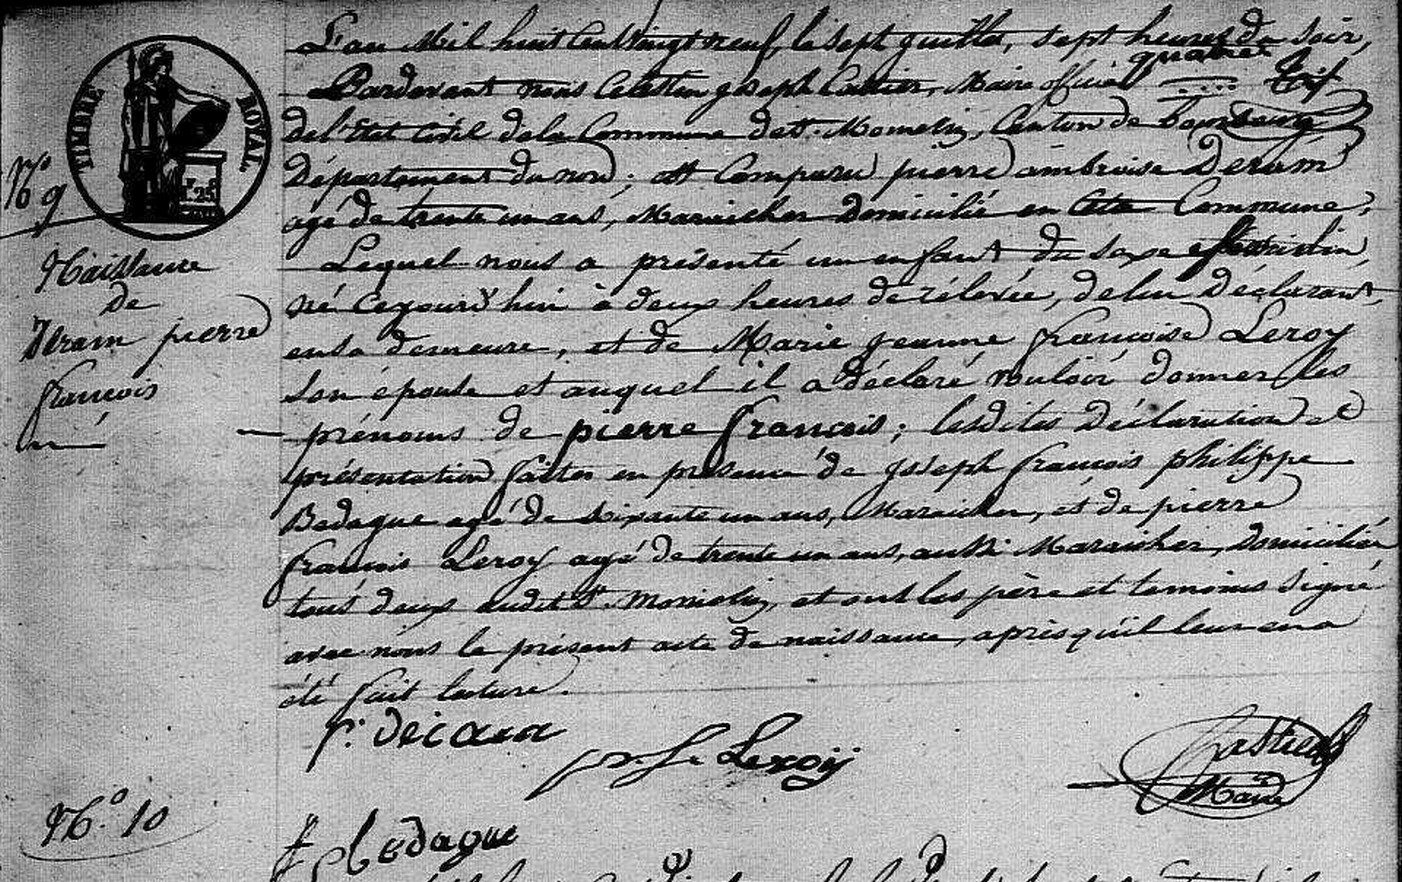 TIMBRE ROYAL
25
N.° 9
Naissance
de
Deram pierre
françois
L'an Mil huit Cent vingt neuf, le sept juillet, sept heures du soir,
Pardevant nous Celestin joseph Maire officier
de l'Etat Civil de la Commune de St. Momelin, Canton de
Département du nord; est Comparu pierre ambroise Deram
agé de trente un ans, Maraicher domicilié en Cette Commune,
Lequel nous a présenté un enfant du sexe Masculin,
né Cejourd'hui à deux heures de rélevée, de lui Déclarant,
en sa demeure, et de Marie jeanne françoise Leroy
son épouse et auquel il a déclaré vouloir donner les
prénoms de pierre françois; lesdites Déclaration et
présentation faites en présence de joseph françois philippe
Bedague agé de soixante un ans, Maraicher, et de pierre
françois Leroy agé de trente un ans, aussi Maraicher, domiciliés
tous deux audit St. Momelin, et ont les père et temoins signé
avec nous le présent acte de naissance, après qu'il leur en a
été fait lecture.
p. f. Leroy
Maire
Bedague
N.° 10